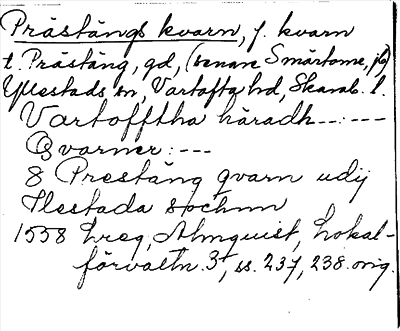 Prästängs kvarn, f. kvarn
t. Prästäng, gd, (senare Smårtorne, jb)
Yllestads sn, Vartofta hd, Skarab. l.
Vartofftha häradh --:---
Qvarner: ---
8 Prestäng qvarn udij
Ilestada sochnn
1558 Lreg, Almquist, Lokal-
förvaltn. 3, ss. 237, 238. orig.